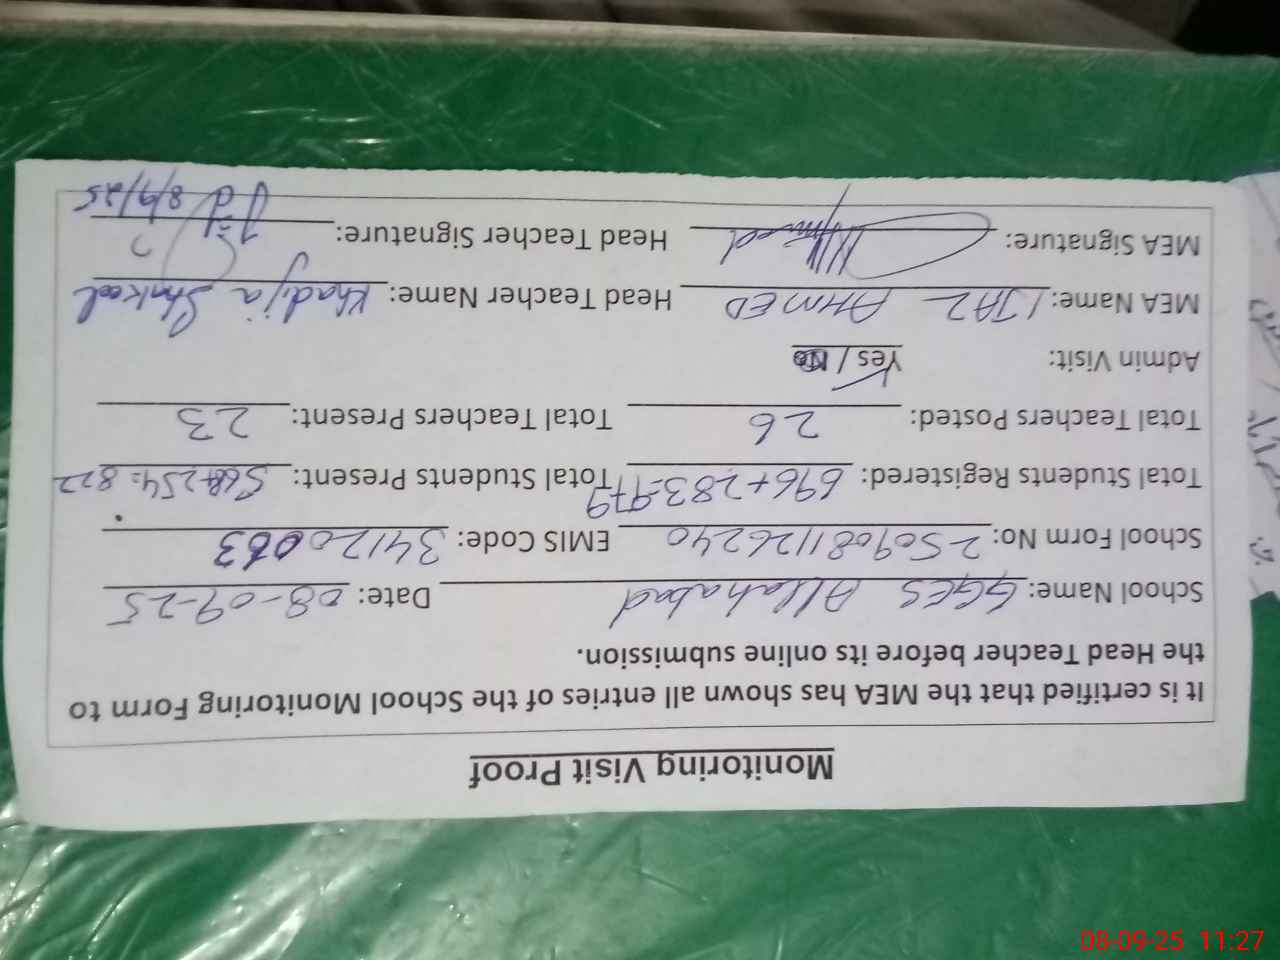 Monitoring Visit Proof
It is certified that the MEA has shown all entries of the School Monitoring Form to
the Head Teacher before its online submission.
School Name: GGES Allahabad Date: 08-09-25
School Form No: 2509081126240 EMIS Code: 34120063
Total Students Registered: 696+283=979 Total Students Present: 568+254=822
Total Teachers Posted: 26 Total Teachers Present: 23
Admin Visit: Yes / No
MEA Name: IJAZ AHMED Head Teacher Name: Khadija Shakeel
MEA Signature: Head Teacher Signature:
8/9/25
08-09-25 11:27